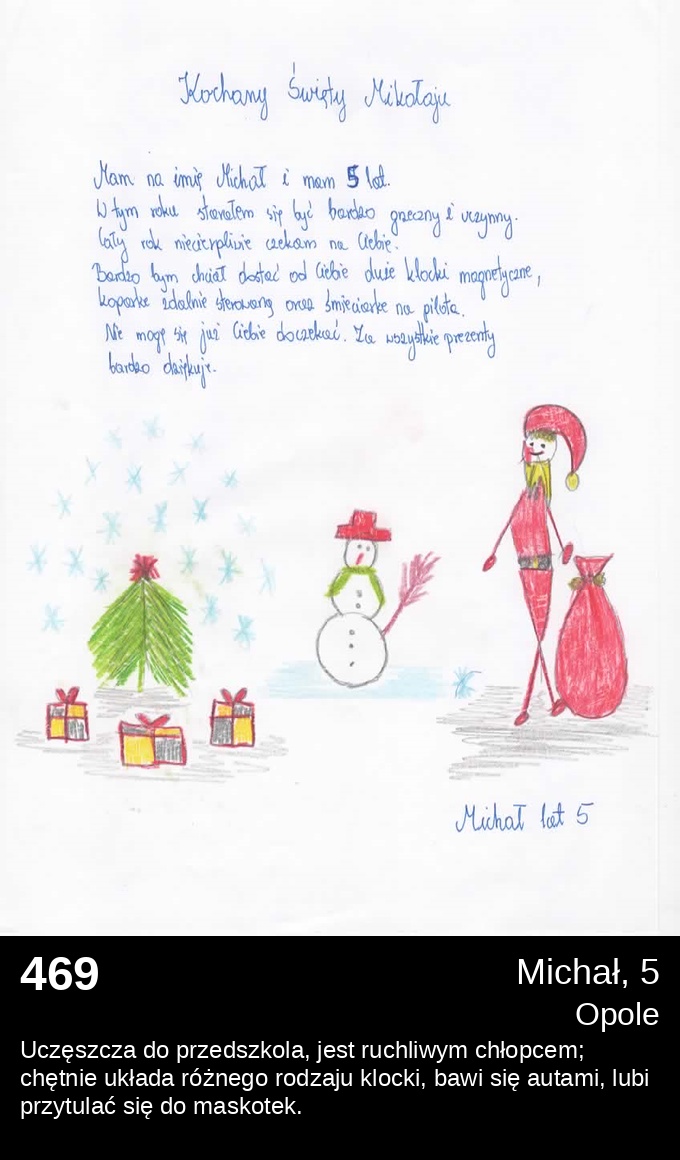 Kochany Święty Mikołaju
Mam na imię Michał i mam 5 lat.
W tym roku starałem się być bardzo grzeczny i uczynny.
Cały rok niecierpliwie czekam na Ciebie.
Bardzo bym chciał dostać od Ciebie duże klocki magnetyczne,
koparkę zdalnie sterowaną oraz śmieciarkę na pilota.
Nie mogę się już Ciebie doczekać. Za wszystkie prezenty
bardzo dziękuję.
Michał lat 5
469
Michał, 5
Opole
Uczęszcza do przedszkola, jest ruchliwym chłopcem;
chętnie układa różnego rodzaju klocki, bawi się autami, lubi
przytulać się do maskotek.